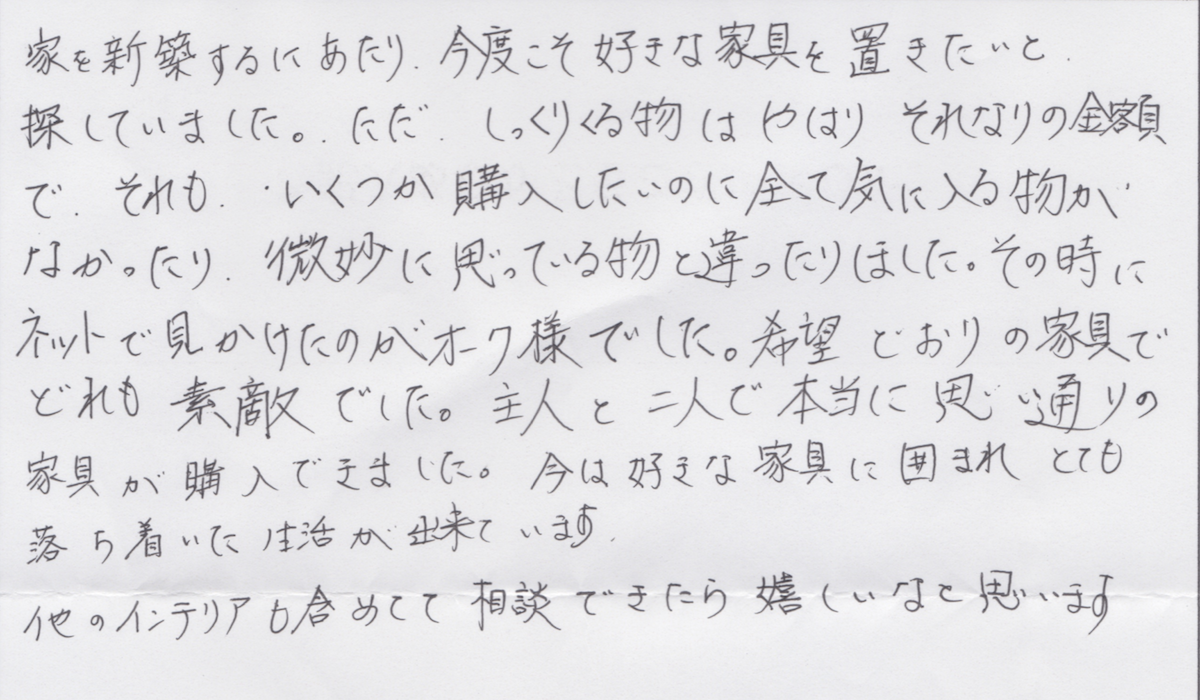 家を新築するにあたり、今度こそ好きな家具を置きたいと、
探していました。ただ、しっくりくる物はやはりそれなりの金額
で、それも、いくつか購入したいのに全て気に入る物が
なかったり、微妙に思っている物と違ったりしました。その時に
ネットで見かけたのがオーク様でした。希望どおりの家具で
どれも素敵でした。主人と二人で本当に思い通りの
家具が購入できました。今は好きな家具に囲まれとても
落ち着いた生活が出来ています。
他のインテリアも含めてて相談できたら嬉しいなと思います